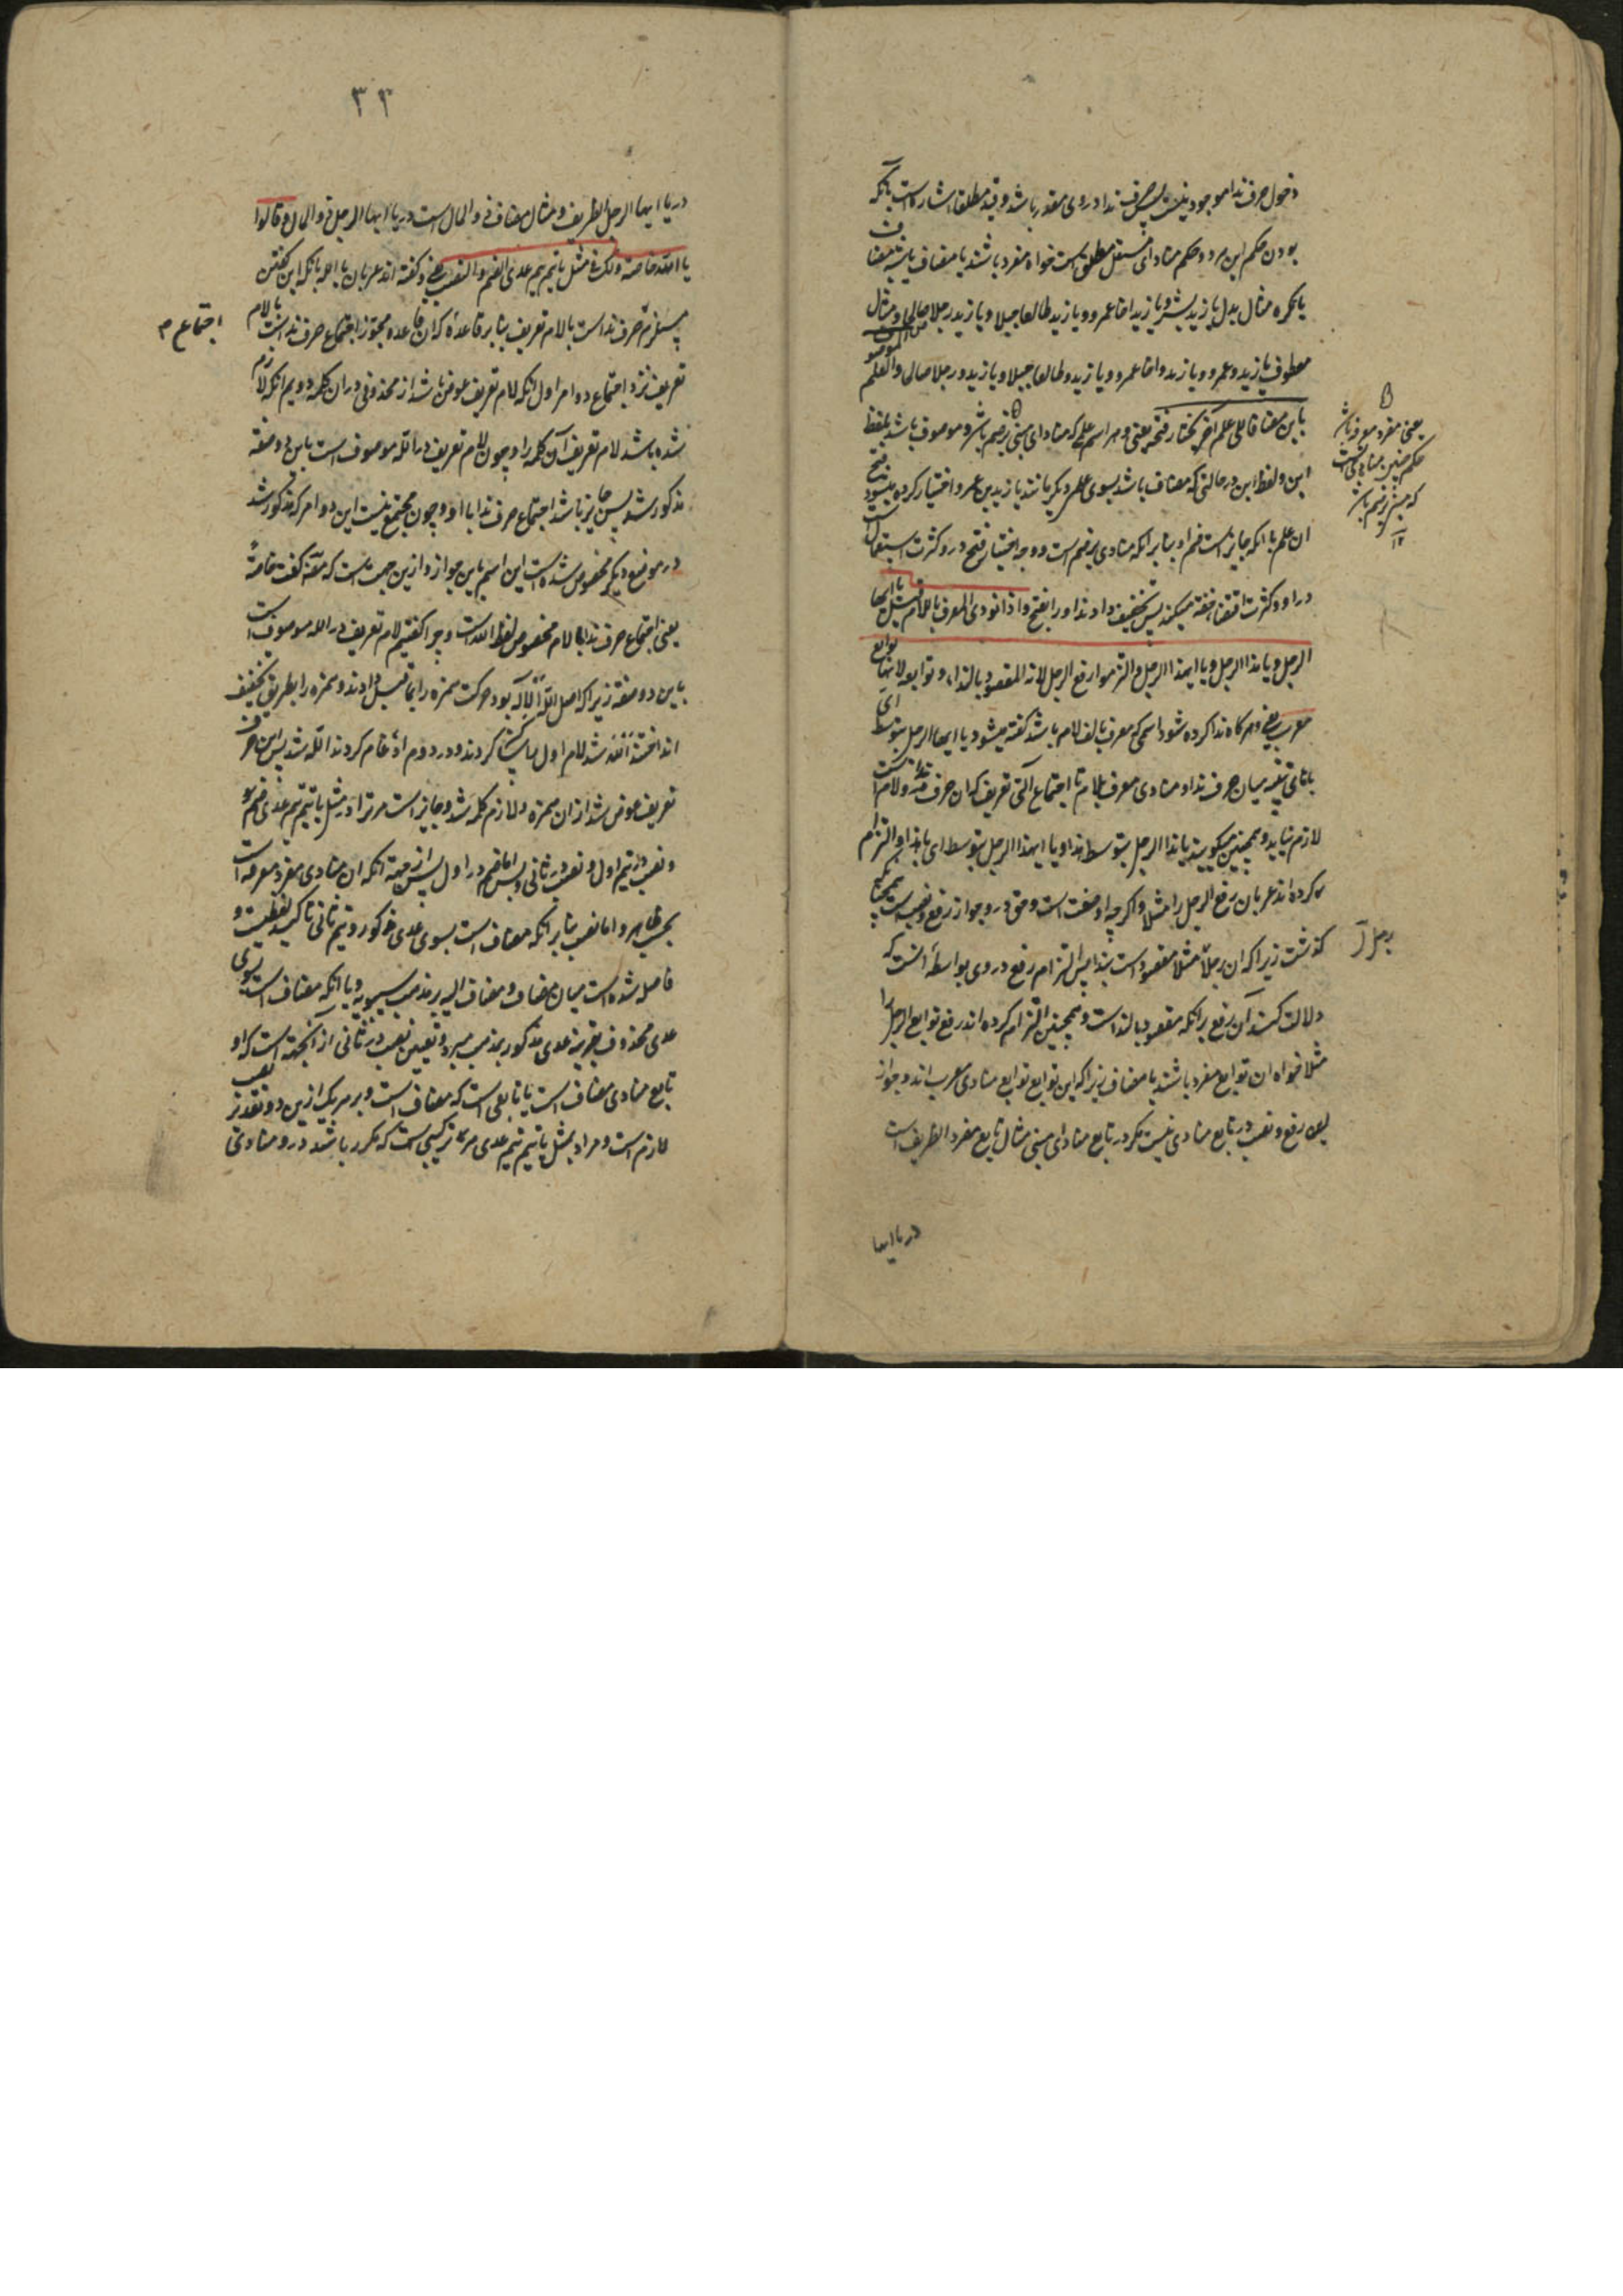 دخول حرف ندا موجود نیست پس حرف ندا در وی مقدر باشد و قید مطلقا اشارت است بآنکه
بودن حکم این مرد و حکم منادای مستقل مطلق است خواه مفرد باشند یا مضاف یا شبه مضاف
یا نکره مثال بدل یا زید بشر و یا زید اخا عمرو و یا زید طالعا جبلا و یا زید رجلا صالحا و مثال
معطوف یا زید و عمرو و یا زید و اخا عمرو و یا زید و طالعا جبلا و یا زید و رجلا صالحا والعلم الموصوف
بابن مضافا الی علم آخر یختار فتحه یعنی و هر اسم علمی که منادای مبنی بر ضم باشد و موصوف باشد بلفظ
ابن و لفظ ابن در حالتی که مضاف باشد بسوی علم دیگر مانند یا زید بن عمرو اختیار کرده میشود فتح
آن علم با آنکه جایز است ضم او بنابر آنکه منادی بر ضم است و وجه اختیار فتح در و کثرت استعمال است
در او و کثرت اقتضا خفة میکند پس تخفیف دادند او را بفتح واذا نودی المعرف باللام قیل یا ایها
الرجل و یا هذا الرجل و یا ایهذا الرجل والتزموا رفع الرجل لانه المقصود بالنداء و توابعه لانها توابع
معرب یعنی و هرگاه ندا کرده شود اسمی که معرف بالف لام باشد گفته میشود یا ایها الرجل بتوسط ای
با های تنبیه میان حرف ندا و منادی معرف بلام تا اجتماع آلتی تعریف که آن حرف ندا و لام است
لازم نیاید و همچنین میگویند یا هذا الرجل بتوسط هذا و یا ایهذا الرجل بتوسط ای با هذا و التزام
کرده اند عربان رفع الرجل را مثلا و اگرچه او صفت است و حق در و جواز رفع و نصب است همچنانکه
گذشت زیرا که آن رجل مثلا مقصود است بندا پس التزام رفع در وی بواسطهٔ آنست که
دلالت کند آن رفع بر آنکه مقصود بالنداست و همچنین التزام کرده اند رفع توابع الرجل را
مثلا خواه آن توابع مفرد باشند یا مضاف زیرا که این توابع توابع منادی معرب اند و جواز
رفع و نصب در تابع منادی نیست مگر در تابع منادای مبنی مثال تابع مفرد الظریف است
در یا ایها
یعنی مفرد معرفه باشد
حکم چنین منادی آنست
که مبنی بر ضم باشد
۱۲
۳۳
در یا ایها الرجل الظریف و مثال مضاف ذو المال است در یا ایها الرجل ذو المال و قالوا
یا الله خاصة ولک فی مثل یا تیم تیم عدی الضم والنصب یعنی و گفته اند عربان یا الله با آنکه این گفتن
مستلزم حرف نداست بالام تعریف بنابر قاعدهٔ که آن قاعده مجوز اجتماع حرف نداست بالام
اجتماع
تعریف نزد اجتماع دو امر اول آنکه لام تعریف عوض باشد از محذوفی در آن کلمه دویم آنکه لازم
شده باشد لام تعریف آن کلمه را و چون لام تعریف در الله موصوف است باین دو صفة
مذکور شد پس جایز باشد اجتماع حرف ندا با او و چون مجتمع نیست این دو امر که مذکور شد
در موضع دیگر مخصوص شده است این اسم باین جواز و ازین جهت است که مصنف گفت خاصةً
یعنی اجتماع حرف ندا با لام مخصوص لفظ الله است و چرا گفتیم لام تعریف در الله موصوف است
باین دو صفة زیرا که اصل الله الاله بود حرکت همزه را بماقبل دادند و همزه را بطریق تخفیف
انداختند اللّه شد لام اول را ساکن کردند و در دوم ادغام کردند الله شد پس این حرف
تعریف عوض شد از آن همزه و لازم کلمه شد و جایز است مر ترا در مثل یا تیم تیم عدی ضم
و نصب در تیم اول و نصب در ثانی و بس اما ضم در اول پس از جهة آنکه آن منادی مفرد معرفه است
بحسب ظاهر و اما نصب بنابر آنکه مضاف است بسوی عدی مذکور و تیم ثانی تاکید لفظیست و
فاصله شده است میان مضاف و مضاف الیه بر مذهب سیبویه و یا آنکه مضاف است بسوی
عدی محذوف بقرینه عدی مذکور بمذهب مبرد و تعیین نصب در ثانی از آنجهة است که او
تابع منادی مضاف است یا تابعی است که مضاف است و بر هر یک ازین دو تقدیر نصب
لازم است و مراد بمثل یا تیم تیم عدی هر ترکیبی است که مکرر باشد در و منادی